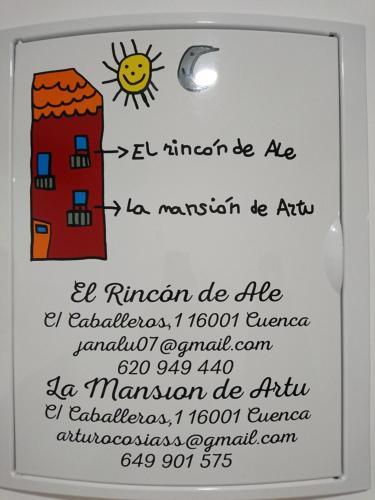 El rincón de Ale
La mansión de Artu
El Rincón de Ale
C/ Caballeros,1 16001 Cuenca
janalu07@gmail.com
620 949 440
La Mansion de Artu
C/ Caballeros,1 16001 Cuenca
arturocosiass@gmail.com
649 901 575